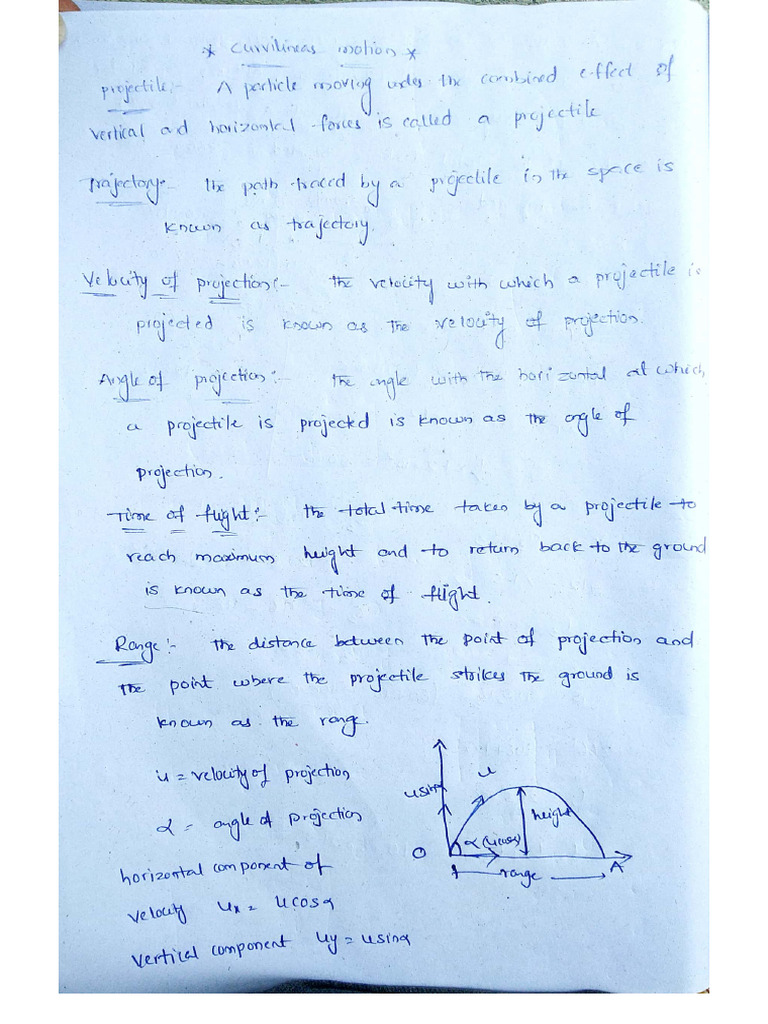 * Curvilinear motion *
projectile:- A particle moving under the combined effect of
vertical and horizontal forces is called a projectile
Trajectory:- The path traced by a projectile in the space is
known as trajectory.
Velocity of projection:- The velocity with which a projectile is
projected is known as the velocity of projection.
Angle of projection:- The angle with the horizontal at which
a projectile is projected is known as the angle of
projection.
Time of flight:- The total time taken by a projectile to
reach maximum height and to return back to the ground
is known as the time of flight.
Range:- The distance between the point of projection and
the point where the projectile strikes the ground is
known as the range.
u = velocity of projection
α = angle of projection
horizontal component of
velocity ux = ucosα
vertical component uy = usinα
usinα
u
height
O
α (ucosα)
A
range